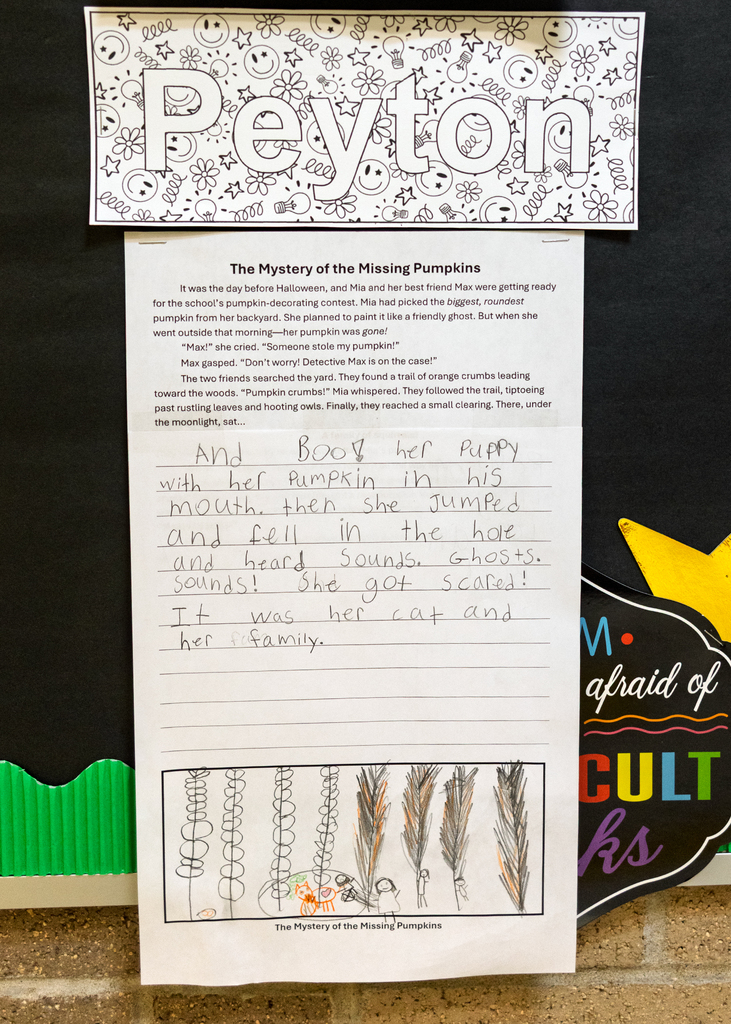 Peyton
The Mystery of the Missing Pumpkins
It was the day before Halloween, and Mia and her best friend Max were getting ready
for the school's pumpkin-decorating contest. Mia had picked the biggest, roundest
pumpkin from her backyard. She planned to paint it like a friendly ghost. But when she
went outside that morning—her pumpkin was gone!
"Max!" she cried. "Someone stole my pumpkin!"
Max gasped. "Don't worry! Detective Max is on the case!"
The two friends searched the yard. They found a trail of orange crumbs leading
toward the woods. "Pumpkin crumbs!" Mia whispered. They followed the trail, tiptoeing
past rustling leaves and hooting owls. Finally, they reached a small clearing. There, under
the moonlight, sat...
And Boo! her puppy
with her pumpkin in his
mouth. then she jumped
and fell in the hole
and heard sounds. Ghosts.
sounds! She got scared!
It was her cat and
her family.
The Mystery of the Missing Pumpkins
M.
afraid of
CULT
ks